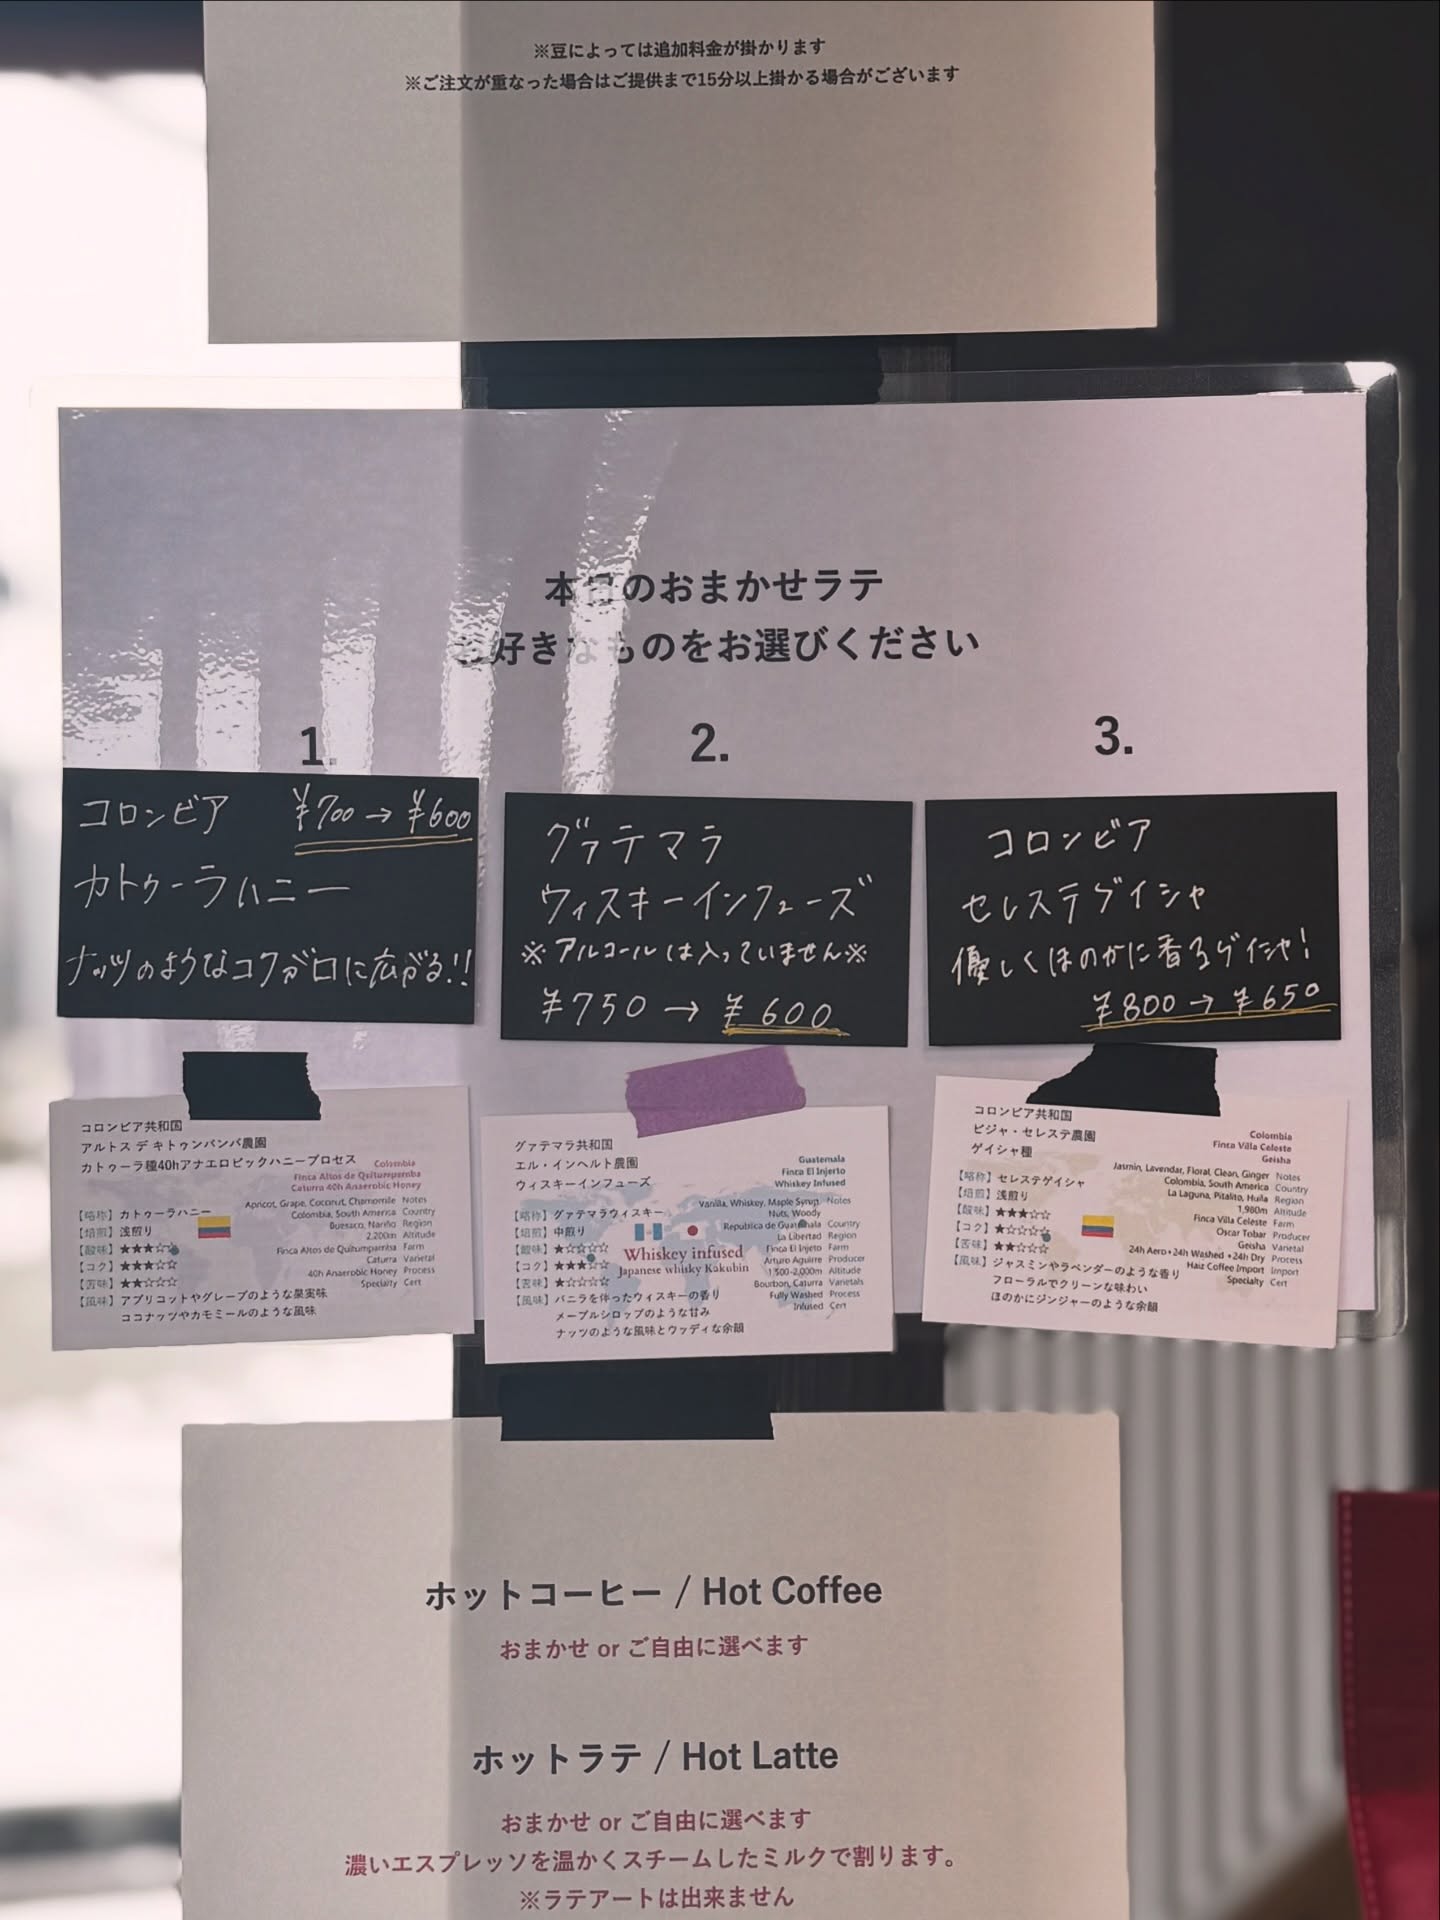 ※豆によっては追加料金が掛かります
※ご注文が重なった場合はご提供まで15分以上掛かる場合がございます
本日のおまかせラテ
お好きなものをお選びください
1.
コロンビア ¥700→¥600
カトゥーラハニー
ナッツのようなコクが口に広がる!!
コロンビア共和国
アルトス デ キトゥンバンバ農園
カトゥーラ種40hアナエロビックハニープロセス
Colombia
Finca Altos de Quitumpamba
Caturra 40h Anaerobic Honey
【略称】カトゥーラハニー
【焙煎】浅煎り
【酸味】★★★☆☆
【コク】★★★☆☆
【苦味】★★☆☆☆
【風味】アプリコットやグレープのような果実味
ココナッツやカモミールのような風味
Apricot, Grape, Coconut, Chamomile Notes
Colombia, South America Country
Buesaco, Nariño Region
2,200m Altitude
Finca Altos de Quitumpamba Farm
Caturra Varietal
40h Anaerobic Honey Process
Specialty Cert
2.
グァテマラ
ウィスキーインフューズ
※アルコールは入っていません※
¥750→¥600
グァテマラ共和国
エル・インヘルト農園
ウィスキーインフューズ
Guatemala
Finca El Injerto
Whiskey Infused
【略称】グァテマラウィスキー
【焙煎】中煎り
【酸味】★☆☆☆☆
【コク】★★★☆☆
【苦味】★☆☆☆☆
【風味】バニラを伴ったウィスキーの香り
メープルシロップのような甘み
ナッツのような風味とウッディな余韻
Whiskey infused
Japanese whisky Kakubin
Vanilla, Whiskey, Maple Syrup, Notes
Nuts, Woody
Republica de Guatemala Country
La Libertad Region
Finca El Injeto Farm
Arturo Aguirre Producer
1,500-2,000m Altitude
Bourbon, Caturra Varietals
Fully Washed Process
Infused Cert
3.
コロンビア
セレステゲイシャ
優しくほのかに香るゲイシャ!
¥800→¥650
コロンビア共和国
ビジャ・セレステ農園
ゲイシャ種
Colombia
Finca Villa Celeste
Geisha
【略称】セレステゲイシャ
【焙煎】浅煎り
【酸味】★★★☆☆
【コク】★☆☆☆☆
【苦味】★★☆☆☆
【風味】ジャスミンやラベンダーのような香り
フローラルでクリーンな味わい
ほのかにジンジャーのような余韻
Jasmin, Lavendar, Floral, Clean, Ginger Notes
Colombia, South America Country
La Laguna, Pitalito, Huila Region
1,980m Altitude
Finca Villa Celeste Farm
Oscar Tobar Producer
Geisha Varietal
24h Aero•24h Washed •24h Dry Process
Haiz Coffee Import Import
Specialty Cert
ホットコーヒー / Hot Coffee
おまかせ or ご自由に選べます
ホットラテ / Hot Latte
おまかせ or ご自由に選べます
濃いエスプレッソを温かくスチームしたミルクで割ります。
※ラテアートは出来ません